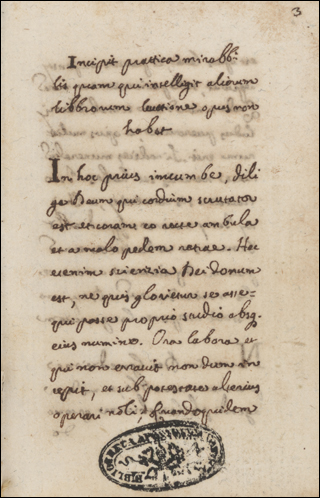 3
Incipit prattica mirabb:
lis quam qui intelligit aliorum
libbrorum lectione opus non
habet
In hoc prius incumbe, dili
ge Deum qui cordium scrutator
est et coram eo recte ambula
et a malo pedem retrae. Hec
etenim scienzia Dei donum
est, ne quis glorietur se asse-
qui posse proprio studio absq
eius numine. Ora labora et
qui non erravit non dum in
cepit, et sub potestate alterius
operari noli, quandoquidem